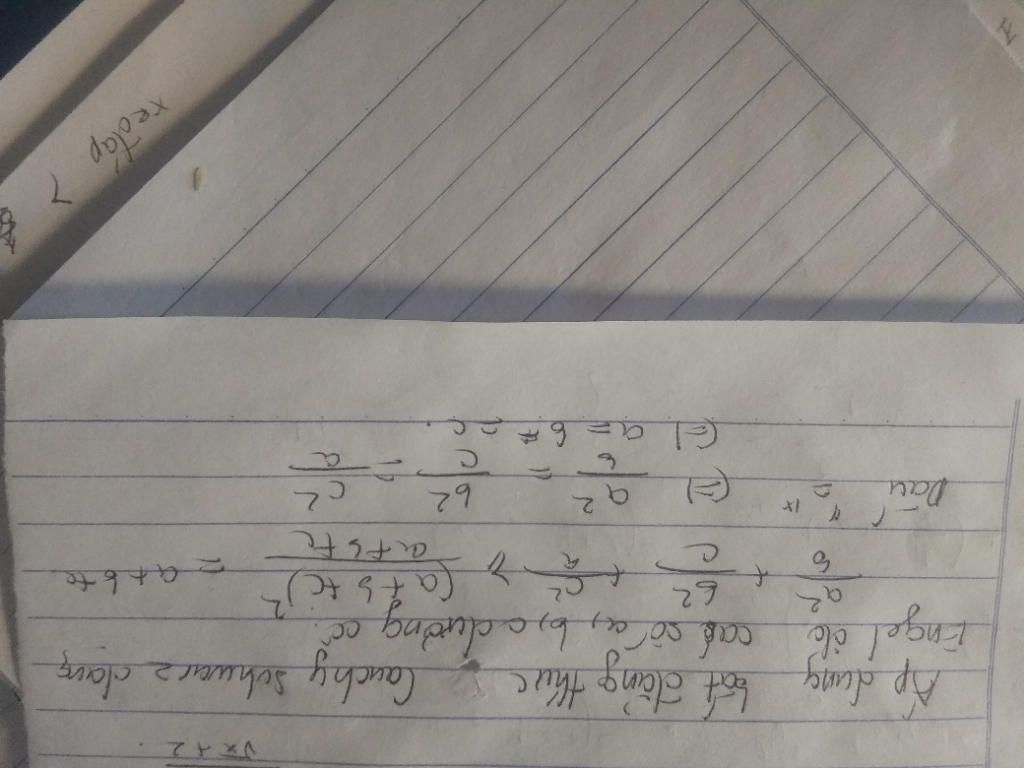 √x + 2
Áp dụng bất đẳng thức Cauchy schwarz dạng
Engel cho các số a, b, c dương có:
a²/b + b²/c + c²/a ≥ (a+b+c)²/a+b+c = a+b+c
Dấu "=" (=) a²/b = b²/c = c²/a
(=) a = b = c.